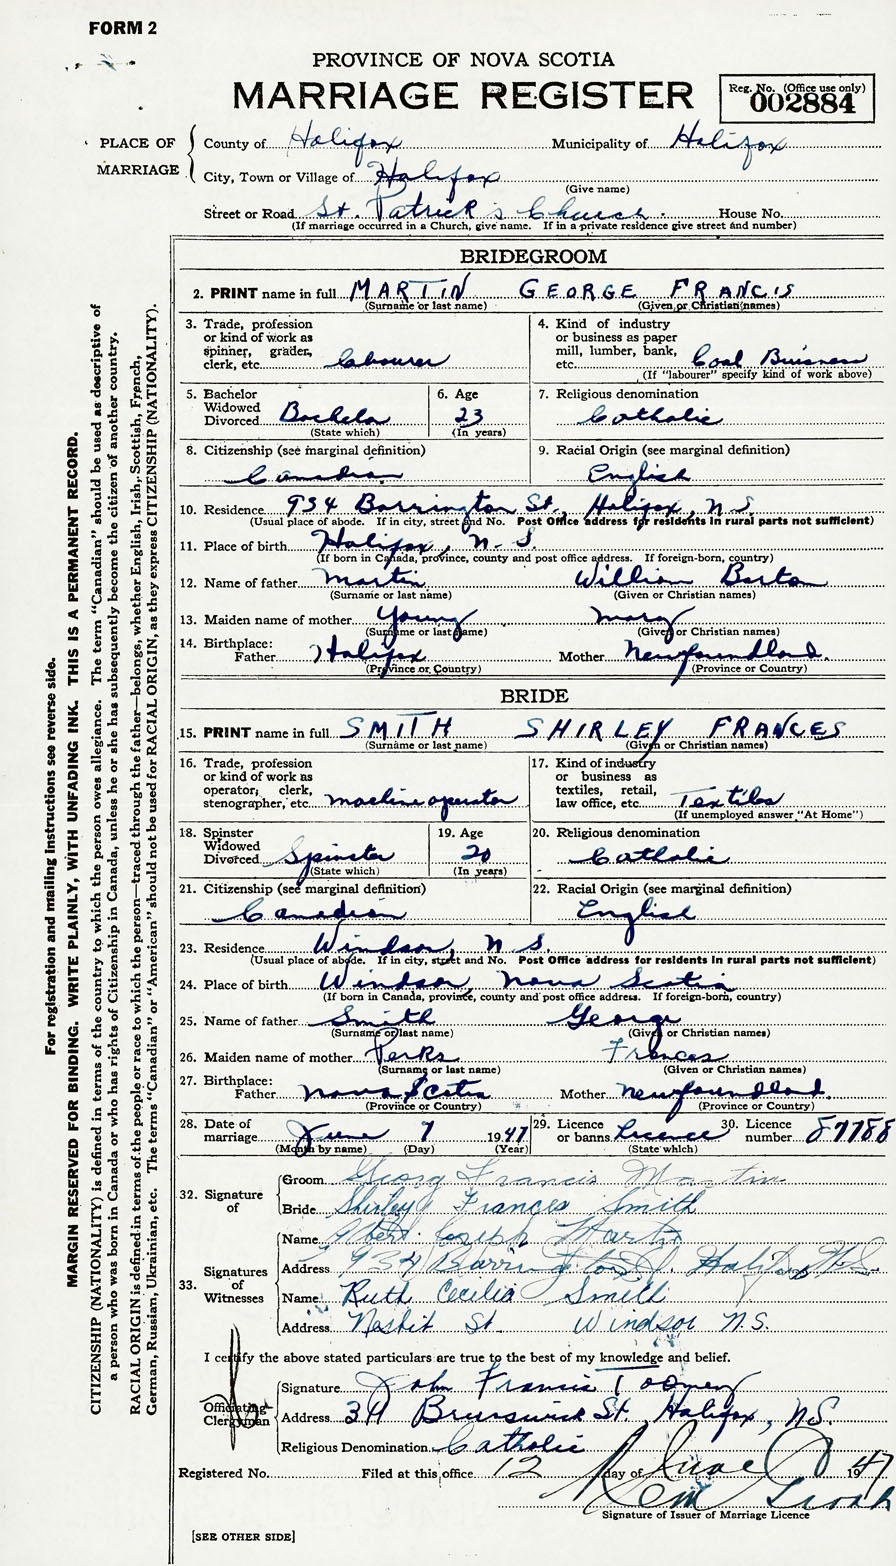 FORM 2
PROVINCE OF NOVA SCOTIA
MARRIAGE REGISTER
Reg. No. (Office use only)
002884
PLACE OF MARRIAGE
County of Halifax Municipality of Halifax
City, Town or Village of Halifax
(Give name)
Street or Road St. Patrick's Church. House No.
(If marriage occurred in a Church, give name. If in a private residence give street and number)
BRIDEGROOM
2. PRINT name in full MARTIN GEORGE FRANCIS
(Surname or last name) (Given or Christian names)
3. Trade, profession or kind of work as spinner, grader, clerk, etc. Labourer
4. Kind of industry or business as paper mill, lumber, bank, etc. Coal Buisness
(If "labourer" specify kind of work above)
5. Bachelor Widowed Divorced Bachelor
(State which)
6. Age 23
(In years)
7. Religious denomination Catholic
8. Citizenship (see marginal definition) Canadian
9. Racial Origin (see marginal definition) English
10. Residence 934 Barrington St., Halifax, N.S.
(Usual place of abode. If in city, street and No. Post Office address for residents in rural parts not sufficient)
11. Place of birth Halifax, N.S.
(If born in Canada, province, county and post office address. If foreign-born, country)
12. Name of father Martin William Barton
(Surname or last name) (Given or Christian names)
13. Maiden name of mother Young Mary
(Surname or last name) (Given or Christian names)
14. Birthplace: Father Halifax Mother Newfoundland.
(Province or Country) (Province or Country)
BRIDE
15. PRINT name in full SMITH SHIRLEY FRANCES
(Surname or last name) (Given or Christian names)
16. Trade, profession or kind of work as operator, clerk, stenographer, etc. machine operator
17. Kind of industry or business as textiles, retail, law office, etc. Textiles
(If unemployed answer "At Home")
18. Spinster Widowed Divorced Spinster
(State which)
19. Age 20
(In years)
20. Religious denomination Catholic
21. Citizenship (see marginal definition) Canadian
22. Racial Origin (see marginal definition) English
23. Residence Windsor, N.S.
(Usual place of abode. If in city, street and No. Post Office address for residents in rural parts not sufficient)
24. Place of birth Windsor, Nova Scotia
(If born in Canada, province, county and post office address. If foreign-born, country)
25. Name of father Smith George
(Surname or last name) (Given or Christian names)
26. Maiden name of mother Perks Frances
(Surname or last name) (Given or Christian names)
27. Birthplace: Father Nova Scotia Mother Newfoundland.
(Province or Country) (Province or Country)
28. Date of marriage June 7 1947
(Month by name) (Day) (Year)
29. Licence or banns Licence
(State which)
30. Licence number 87788
32. Signature of
Groom George Francis Martin
Bride Shirley Frances Smith
33. Signatures of Witnesses
Name Albert Joseph Martin
Address 934 Barrington St. Halifax N.S.
Name Ruth Cecilia Smith
Address Nesbit St. Windsor N.S.
I certify the above stated particulars are true to the best of my knowledge and belief.
Officiating Clergyman
Signature John Francis Toomey
Address 34 Brunswick St. Halifax, N.S.
Religious Denomination Catholic
Registered No. Filed at this office 12 day of June 1947
Signature of Issuer of Marriage Licence
[SEE OTHER SIDE]
For registration and mailing instructions see reverse side.
MARGIN RESERVED FOR BINDING. WRITE PLAINLY, WITH UNFADING INK. THIS IS A PERMANENT RECORD.
CITIZENSHIP (NATIONALITY) is defined in terms of the country to which the person owes allegiance. The term "Canadian" should be used as descriptive of
a person who was born in Canada or who has rights of Citizenship in Canada, unless he or she has subsequently become the citizen of another country.
RACIAL ORIGIN is defined in terms of the people or race to which the person—traced through the father—belongs, whether English, Irish, Scottish, French,
German, Russian, Ukrainian, etc. The terms "Canadian" or "American" should not be used for RACIAL ORIGIN, as they express CITIZENSHIP (NATIONALITY).